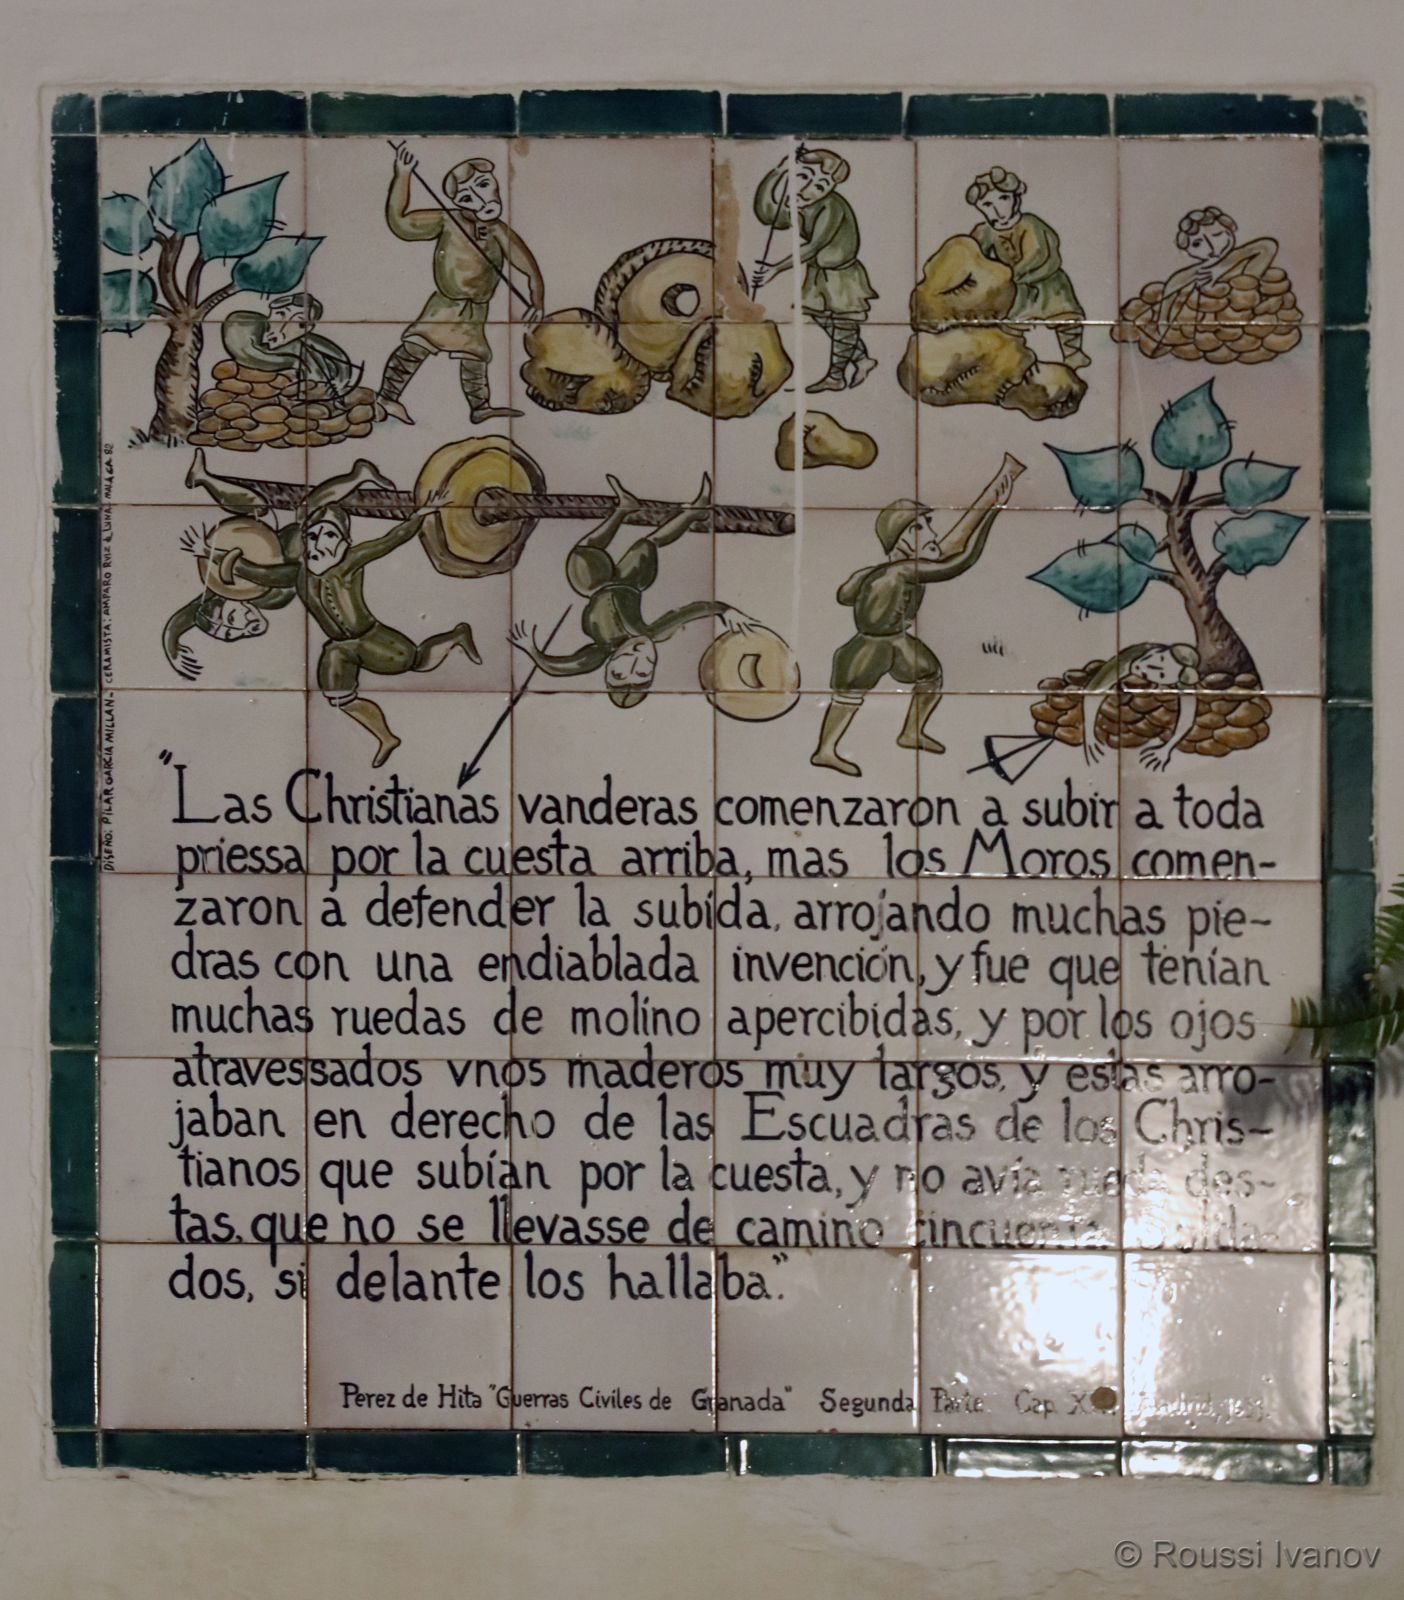 "Las Christianas vanderas comenzaron a subir a toda
priessa por la cuesta arriba, mas los Moros comen-
zaron a defender la subida, arrojando muchas pie-
dras con una endiablada invención, y fue que tenían
muchas ruedas de molino apercibidas, y por los ojos
atravessados vnos maderos muy largos, y estas arro-
jaban en derecho de las Escuadras de los Chris-
tianos que subían por la cuesta, y no avía rueda des-
tas, que no se llevasse de camino cincuenta solda-
dos, si delante los hallaba."
Perez de Hita "Guerras Civiles de Granada" Segunda Parte. Cap.
DISEÑO: PILAR GARCIA MILLAN - CERAMISTA: AMPARO RUIZ d LUNA. MALAGA 82
© Roussi Ivanov